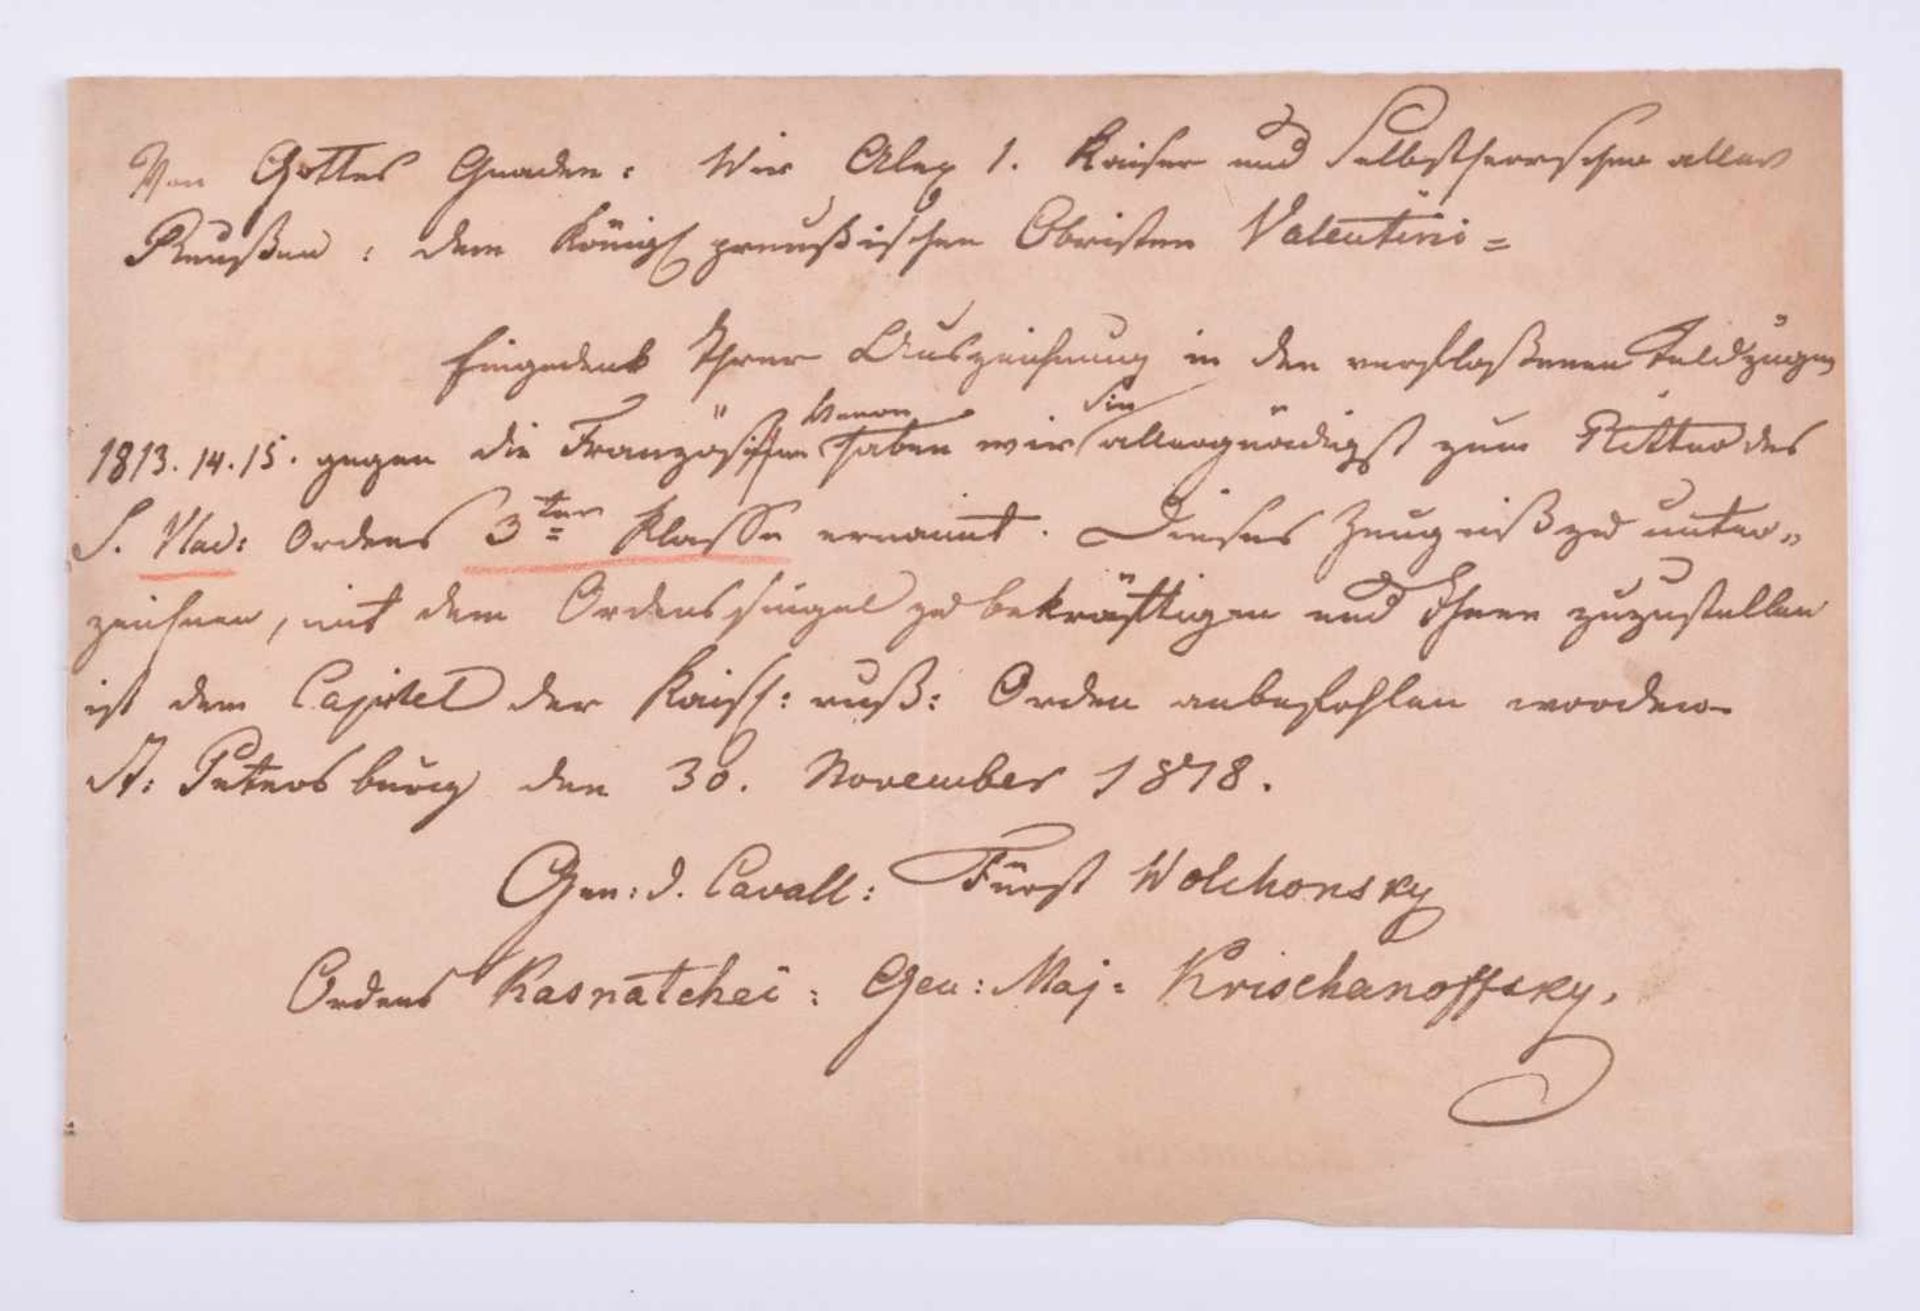 Von Gottes Gnaden: Wir Alex 1. Kaiser und Selbstherrscher aller
Reußen: dem Königl preußischen Obristen Valentini =
Eingedenk Ihrer Auszeichnung in den verfloßenen Feldzügen
1813. 14. 15. gegen die Französischen haben wir Sie allergnädigst zum Ritter des
S. Wlad: Ordens 3ter Klasse ernannt. Dieses Zeugniß zu unter„
zeichnen, mit dem Ordenssiegel zu bekräftigen und Ihnen zuzustellen
ist dem Capitel der Kaiserl: ruß: Orden anbefohlen worden
St: Petersburg den 30. November 1818.
Gen: d. Cavall: Fürst Wolchonsky
Ordens Kasnatchei: Gen: Maj: Krischanoffsky.